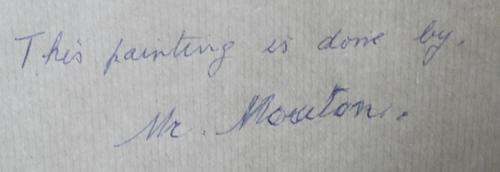 This painting is done by.
Mr. Mouton.